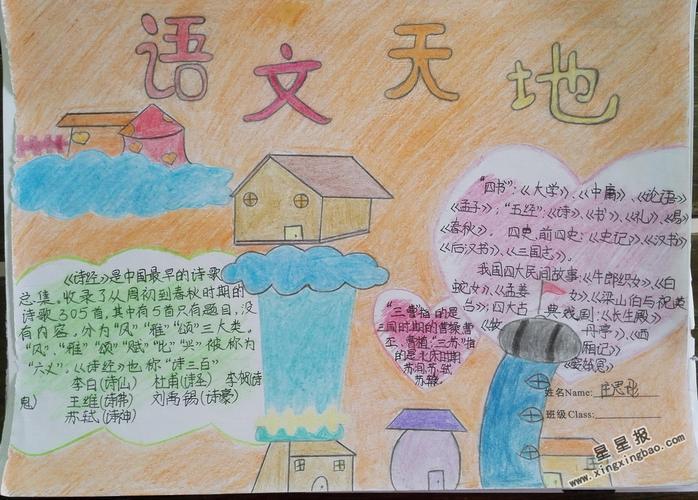 语文天地
《诗经》是中国最早的诗歌
总集。收录了从周初到春秋时期的
诗歌305首,其中有5首只有题目,没
有内容。分为"风""雅""颂"三大类。
"风"、"雅""颂""赋""比""兴"被称为
"六义"。《诗经》也称"诗三百"
李白(诗仙) 杜甫(诗圣) 李贺(诗
鬼) 王维(诗佛) 刘禹锡(诗豪)
苏轼(诗神)
"四书":《大学》、《中庸》、《论语》
《孟子》;"五经":《诗》、《书》、《礼》、《易》
《春秋》。 四史,前四史:《史记》、《汉书》
《后汉书》、《三国志》。
我国四大民间故事:《牛郎织女》、《白
蛇女》、《孟姜女》、《梁山伯与祝英
台》;四大古典戏剧:《长生殿》
《牡丹亭》、《西
厢记》
《窦娥冤》
"三曹"指的是
三国时期的曹操曹
丕、曹植。"三苏"指
的是北宋时期
苏洵、苏轼
苏辙。
姓名Name:
班级Class:
星星报
www.xingxingbao.com